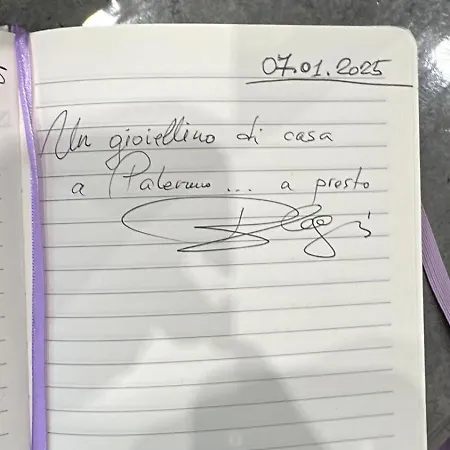 07.01.2025
Un gioiellino di casa
a Palermo... a presto